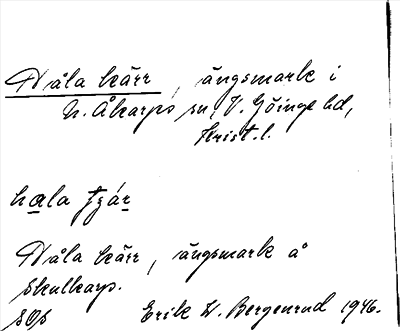 Håla kärr, ängsmark i
N. Åkarps sn, V. Göinge hd,
Krist. l.
hala
Håla kärr, ängsmark å
Skulkarp.
Erik W. Bergenrud 1946.